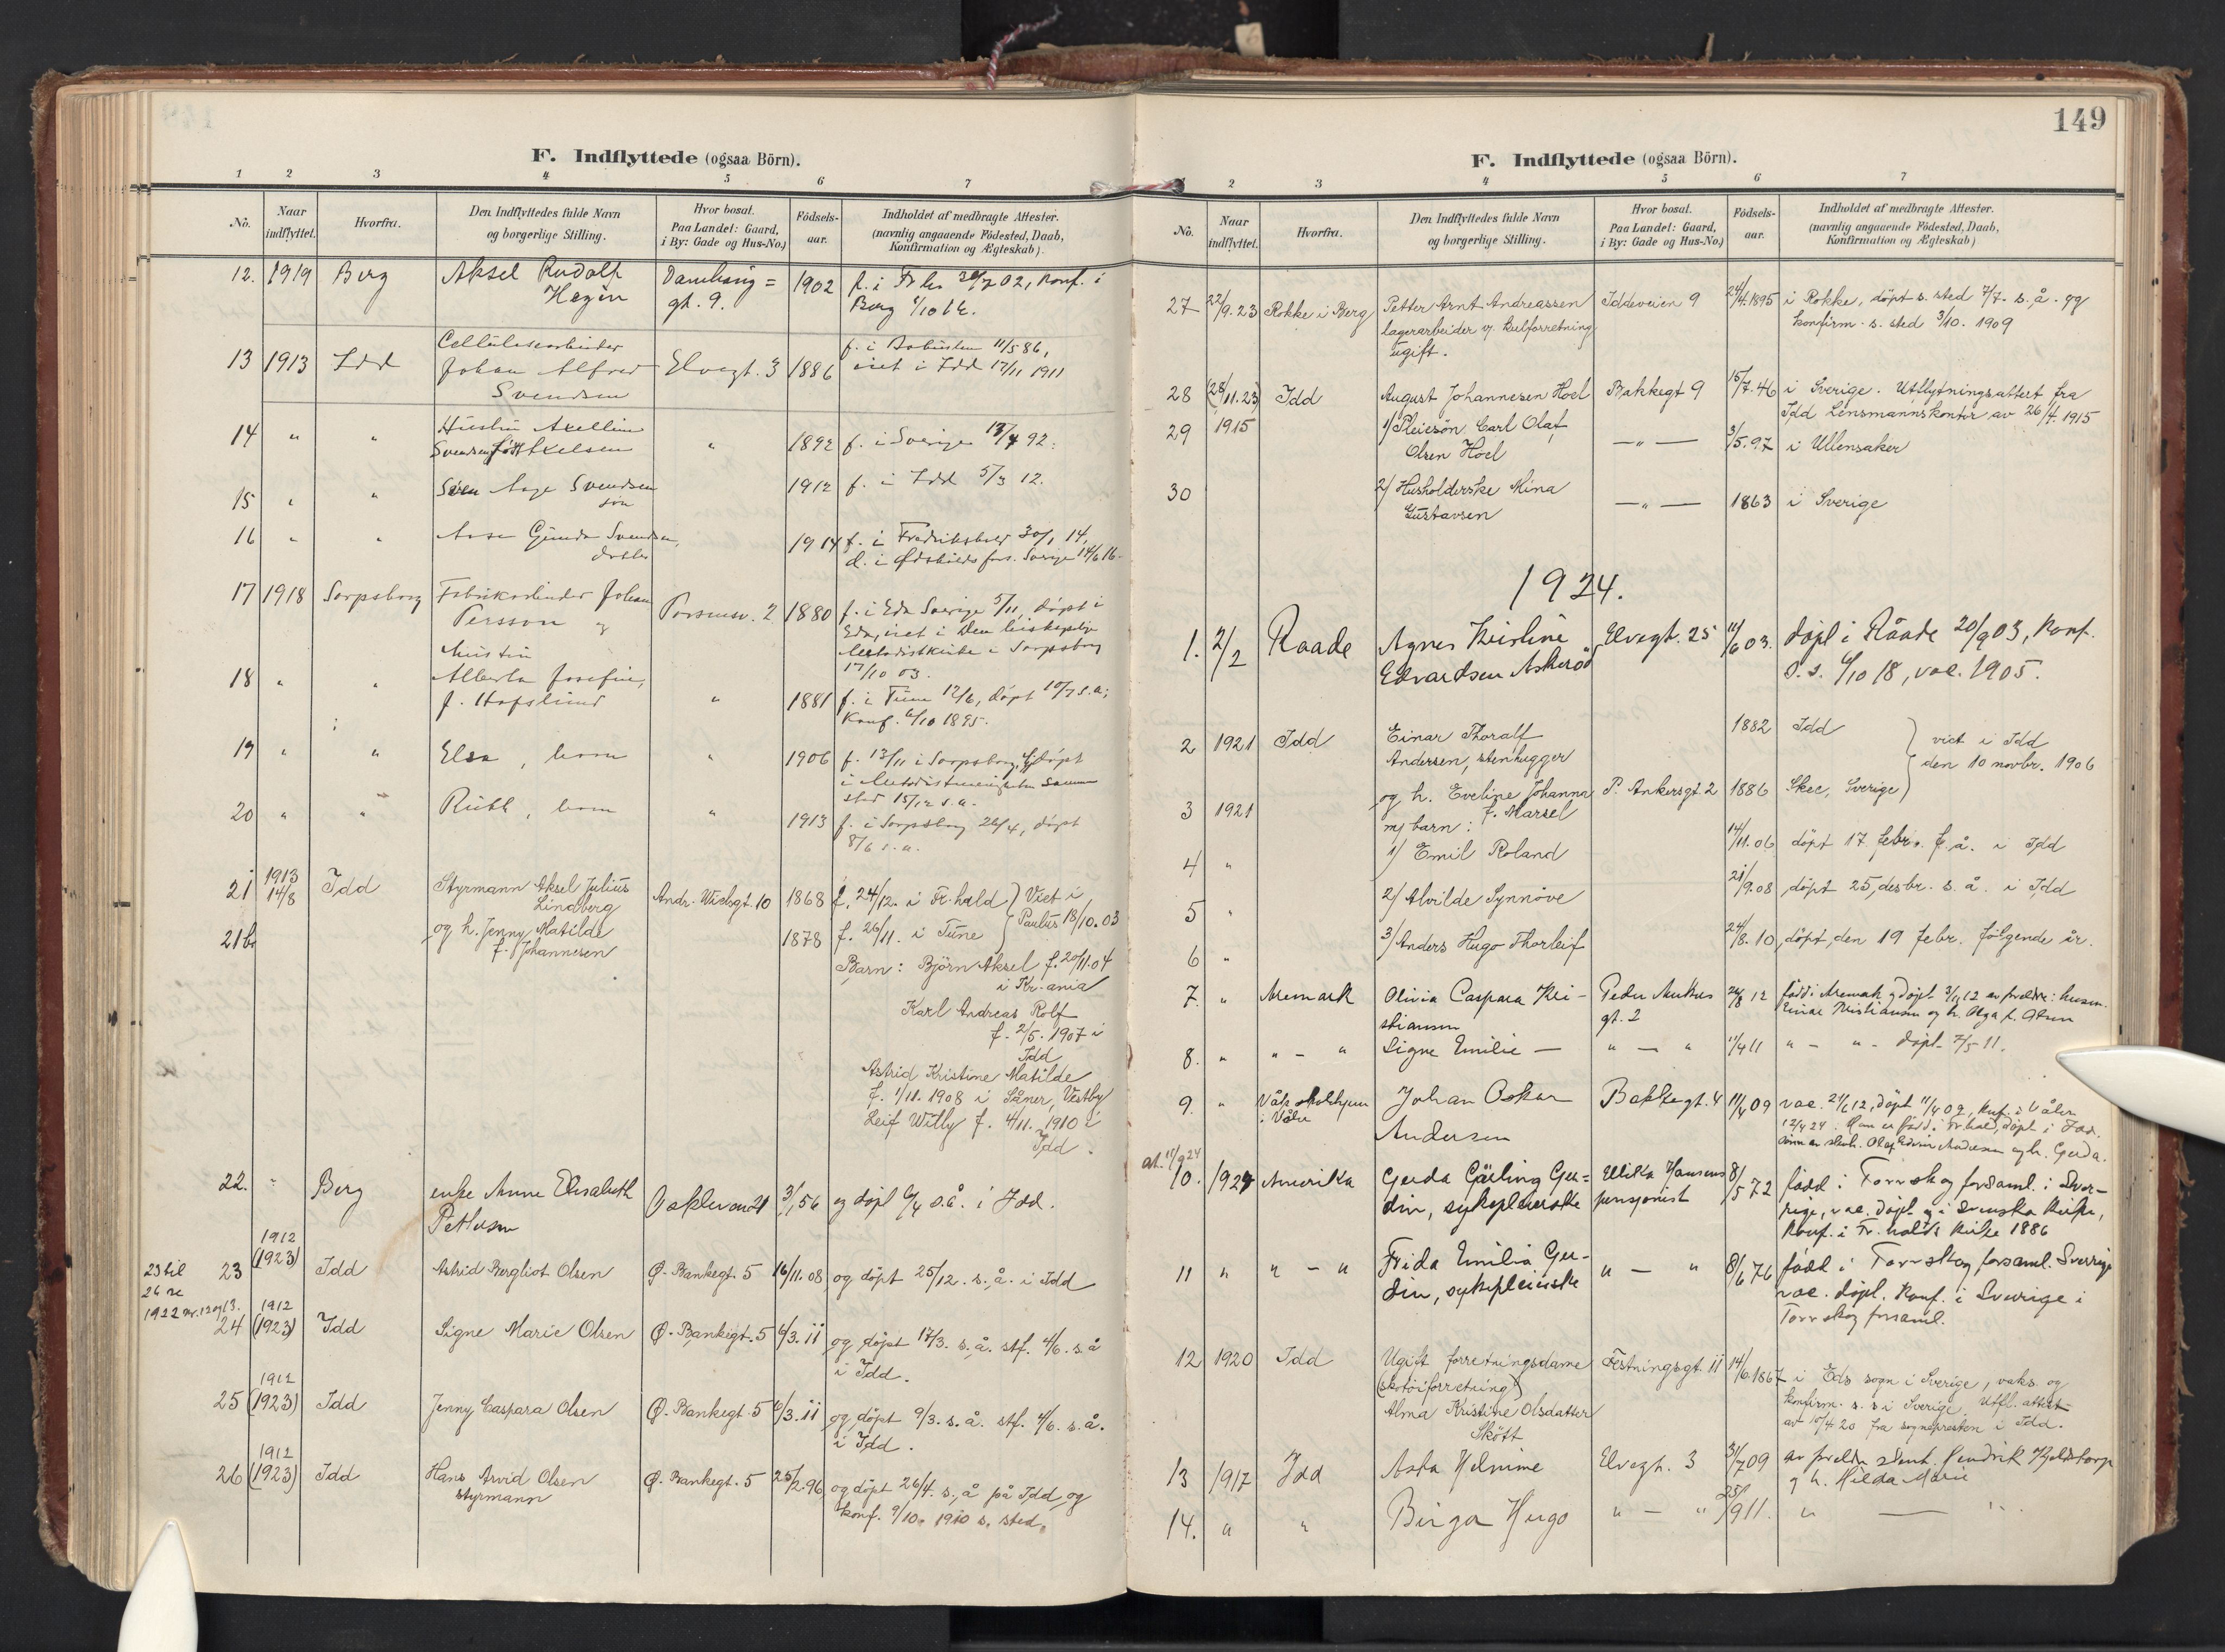 F. Indflyttede (ogsaa Börn).
1 2 3 4 5 6 7
No.
Naar indflyttet.
Hvorfra.
Den Indflyttedes fulde Navn
og borgerlige Stilling.
Hvor bosat.
Paa Landet: Gaard,
i By: Gade og Hus-No.)
Födsels-
aar.
Indholdet af medbragte Attester.
(navnlig angaaende Födested, Daab,
Konfirmation og Ægteskab).
12. 1919 Berg Aksel Rudolf 1902 f. i Fr.hs 02, Konf. i
gt. 9. Berg
13 1913 Idd Johan Alfred Elvegt. 3 1886 f. i 11/5 86,
Svendsen viet i Idd 17/11 1911
14 " " Hustru Axelline
Svendsen född Axelsen " 1892 f. i Sverige 92.
15 " " Svendsen 1912 f. i Idd 5/3 12.
søn
16 " " Svendsen, 1914 f. i Fredrikshald 30/1 14,
datter
17 1918 Sarpsborg Fabrikarbeider Johan
Persson og 2 1880 f. i Eda Sverige 5/11, döpt i
Eda, viet i Den biskopelige
Metodistkirke i Sarpsborg
17/10 03.
18 " " Alberta Josefine,
f. Hafslund " 1881 f. i Tune 12/6, döpt 10/7 s.a.,
Konf. 6/10 1895.
19 " " Elsa, barn " 1906 f. 13/11 i Sarpsborg, döpt
i Metodistmenigheten samme
sted 15/12 s.a.
20 " " Ruth, barn " 1913 f. i Sarpsborg 26/4, döpt
8/6 s.a.
21 1913 14/8 Idd Styrmann Aksel Julius
Lindberg Andr. Wielsgt. 10 1868 f. 24/12. i Fr.hald } Viet i
21b og h. Jenny Matilde 1878 f. 26/11. i Tune } Paulus 18/10. 03
f. Johannesen
Barn: Björn Aksel f. 20/11.04
i Kr.ania
Karl Andreas Rolf
f. 2/5. 1907 i
Idd
Astrid Kristine Matilde
f. 1/11. 1908 i Såner, Vestby
Leif Willy f. 4/11. 1910 i
Idd.
22. " Berg enke Anne Elisabeth 3/1 56 og döpt 6/4 s.å. i Idd.
Pettersen
23 til
26 se
1922 nr. 12 og 13.
23 1912 (1923) Idd Astrid Bergliot Olsen Ø. Bankegt. 5 16/11.08 og döpt 25/12. s.å. i Idd
24 1912 (1923) Idd Signe Marie Olsen Ø. Bankegt. 5 6/3. 11 og döpt 17/3. s.å. stf. 4/6. s.å
i Idd.
25 1912 (1923) Idd Jenny Caspara Olsen Ø. Bankegt. 5 6/3. 11 og döpt 9/3. s.å. stf. 4/6. s.å.
i Idd.
26 1912 (1923) Idd Hans Arvid Olsen Ø. Bankegt. 5 25/2.96 og döpt 26/4. s.å på Idd og
styrmann konf. 9/10. 1910 s. sted.
149
F. Indflyttede (ogsaa Börn).
1 2 3 4 5 6 7
No.
Naar indflyttet.
Hvorfra.
Den Indflyttedes fulde Navn
og borgerlige Stilling.
Hvor bosat.
Paa Landet: Gaard,
i By: Gade og Hus-No.)
Födsels-
aar.
Indholdet af medbragte Attester.
(navnlig angaaende Födested, Daab,
Konfirmation og Ægteskab)
27 22/9.23 Rokke i Berg Petter Arnt Andreassen Iddeveien 9 24/4.1895 i Rokke, döpt s. sted 7/7. s.å. og
lagerarbeider v. kulforretning konfirm. s. sted 3/10. 1909
ugift.
28 (28/11.23) Idd August Johannesen Hoel Bakkegt 9 15/7.46 i Sverige. Utflytningsattest fra
Idd Lensmannskontor av 26/4. 1915
29 1915 1/ Pleiesön Carl Olaf — " — 3/5.97 i Ullensaker
Olsen Hoel
30 2/ Husholderske Mina — " — 1863 i Sverige
Gustavsen
1924.
1. 2/2 Raade Agnes Kristine Elvegt. 25 11/6 03. döpt i Råade 20/9 03, Konf.
Edvardsen Askeröd s.s. 6/10 18, vac. 1905.
2 1921 Idd Einar Thoralf 1882 Idd } viet i Idd
Andersen, stenhugger } den 10 novbr. 1906
3 1921 og h. Eveline Johanna P. Ankersgt. 2 1886 Skee, Sverige
f. Marsel
m/ barn:
4 " 1/ Emil Roland 14/11.06 döpt 17 febr. f.å. i Idd
5 " 2/ Alvilde Synnöve 21/9.08 döpt 25 desbr. s.å. i Idd
6 " 3/ Anders Hugo Thorleif 24/8.10 döpt den 19 febr. fölgende år.
7. " Aremark Olivia Caspara Kri-
stiansen Peder Ankers
gt. 2 26/8 12 född i Aremark og döpt 3/11 12 av foreldre: husm.
Einar Kristiansen og h. Olga f. Olsen
8. " " - " Signe Emilie — " — " 1/4 11 " - " - döpt 7/5 11.
9. " i Våler Johan Oskar
Andersen Bakkegt. 4 11/4 09 vac. 21/6 12, döpt 11/4 09, Konf. i Våler
12/4 24. Han er född i Fr.hald, döpt i Idd.
Olaf Edvin Andersen og h. Gerda.
at. 11/9 24
10. 1924 Amerika Gerda Gärling Gu-
din, sykepleierske Ellika Hansens
pensjonist 8/5 72 född i Torrskog forsaml. i Sver-
rige, vac. döpt og i Svenska kirke,
Konf. i Fr.halds kirke 1886
11 " " - " Frida Emilia Gu-
din, sykepleierske " — " 8/6 76 född i Torrskog forsaml. Sverrige
vac. döpt. Konf. i Sverige i
Torrskog forsaml.
12 1920 Idd Ugift forretningsdame Festningsgt. 11 14/6.1867 i Eds sogn i Sverige, vaks. og
(skotöiforretning) konfirm. s.s i Sverige. Utfl. attest
Alma Kristine Olsdatter av 10/4 20 fra sognepresten i Idd.
Skött
13 1917 Idd Asta Helmine Elvegt. 3 31/7 09 av foreldre stenh. Hendrik
og h. Hilda Marie
14. " " Birger Hugo " — " 25/9 11. " —